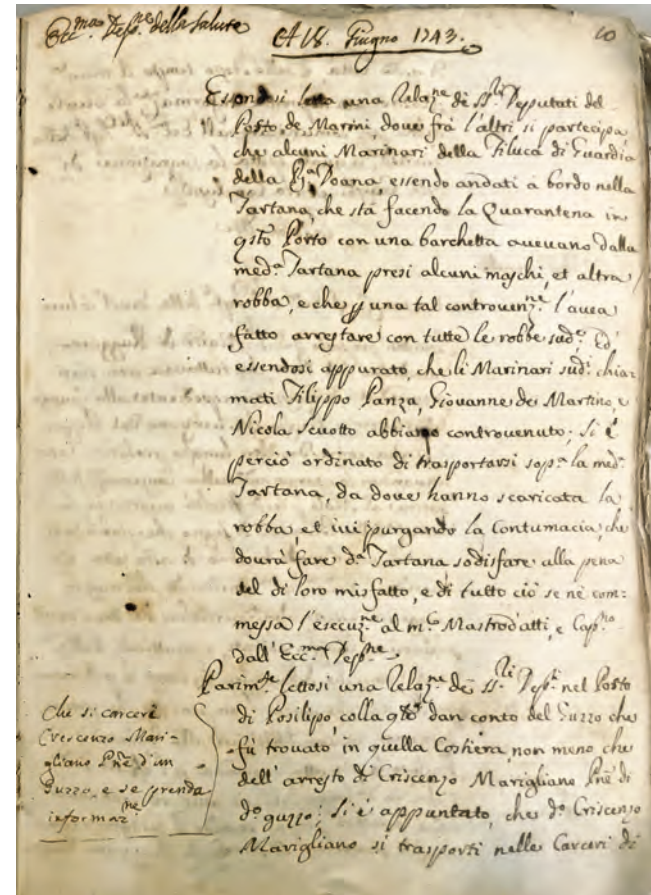 Ecc.ma Dep.ne della Salute
A 18. Giugno 1743.
Essendosi letta una Relaz.ne de SS.li Deputati del
Posto de Marini, dove frà l'altri si partecipa
che alcuni Marinari della Filuca di Guardia
della Doana, essendo andati à bordo nella
Tartana, che stà facendo la Quarantena in
q̃sto Porto con una barchetta avevano dalla
med.a Tartana presi alcuni et altra
robba, e che una tal controven.ne l'avea
fatto arrestare con tutte le robbe sud.e Ed'
essendosi appurato, che li Marinari sud.i chia-
mati Filippo Panza, Giovanne de Martino, e
Nicola Scuotto abbiano controvenuto; Si è
perciò ordinato di trasportarsi sop.a la med.a
Tartana, da dove hanno scaricata la
robba, et ivi purgando la Contumacia, che
dovrà fare d.a Tartana sodisfare alla pena
del di loro misfatto, e di tutto ciò se nè com:
messa l'esecuz.ne al m.co Mastrod'atti, e Cap.no
dall'Ecc.ma Dep.ne
Parim.te lettosi una Relaz.ne de SS.li Dep.ti nel Posto
di Posilipo, colla q̃le dan conto del Guzzo che
fù trovato in quella Costiera, non meno che
dell'arresto di Criscenzo Marigliano Pñe di
d.o guzzo; Si è appuntato, che d.o Criscenzo
Marigliano si trasporti nelle Carceri di
Che si carceri
Crescenzo Mari-
gliano Pñe d'un
Guzzo, e se prenda
informaz.ne